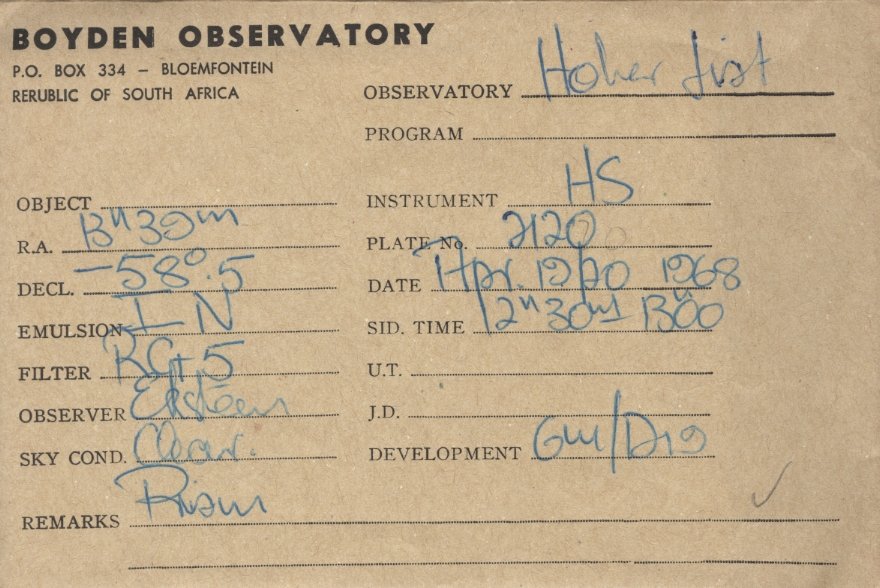 BOYDEN OBSERVATORY
P.O. BOX 334 – BLOEMFONTEIN
RERUBLIC OF SOUTH AFRICA
OBSERVATORY Hoher List
PROGRAM
OBJECT
R.A. 13h 39m
DECL. -58°.5
EMULSION I-N
FILTER RG 5
OBSERVER
SKY COND. Clear.
REMARKS
INSTRUMENT HS
PLATE No. 2120
DATE Apr. 19/20 1968
SID. TIME 12h 30m - 13h00
U.T.
J.D.
DEVELOPMENT 6m/D19